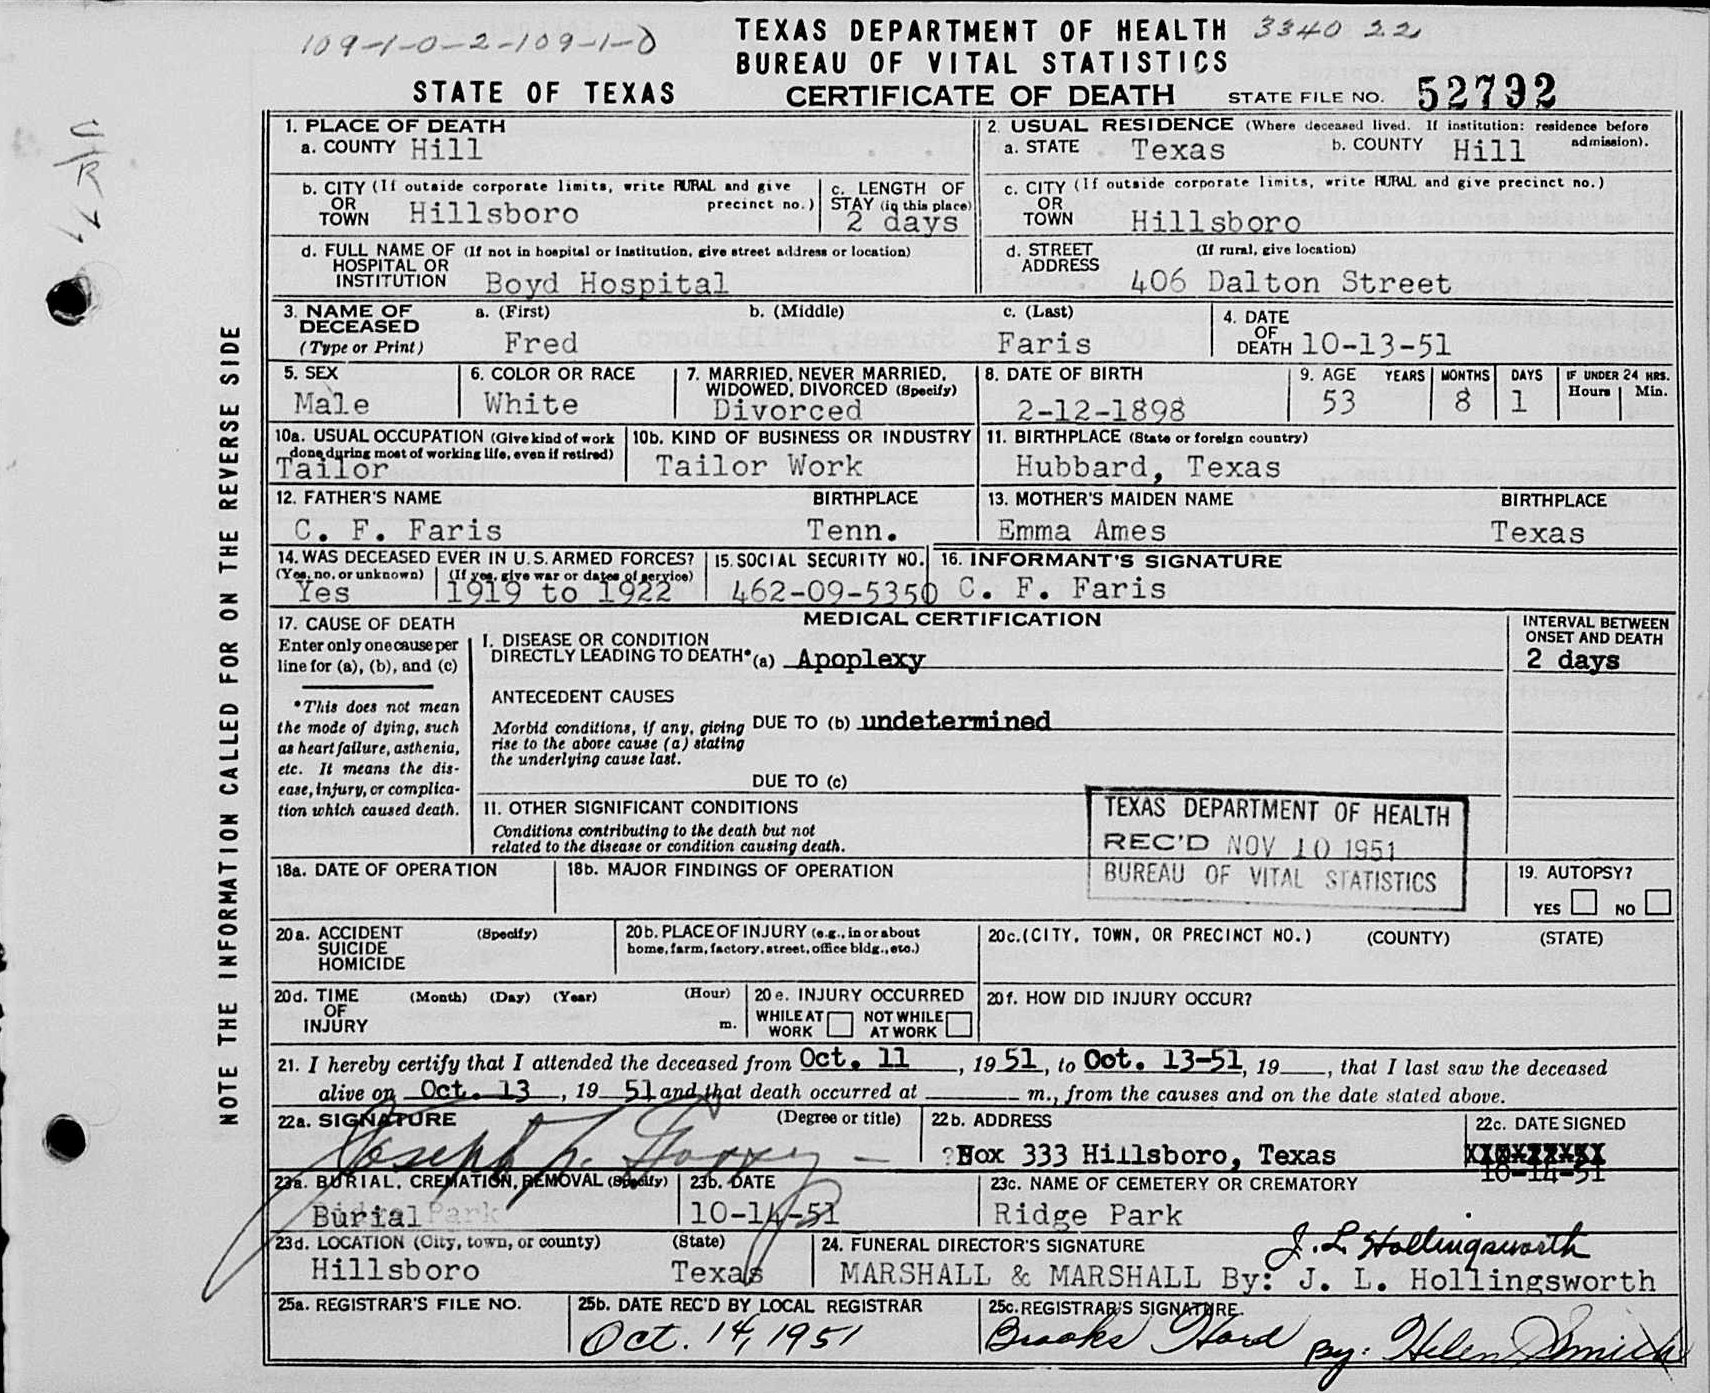 109-1-0-2-109-1-0
TEXAS DEPARTMENT OF HEALTH 3340 22
BUREAU OF VITAL STATISTICS
STATE OF TEXAS CERTIFICATE OF DEATH STATE FILE NO. 52792
NOTE THE INFORMATION CALLED FOR ON THE REVERSE SIDE
1. PLACE OF DEATH
a. COUNTY Hill
2. USUAL RESIDENCE (Where deceased lived. If institution: residence before admission).
a. STATE Texas b. COUNTY Hill
b. CITY (If outside corporate limits, write RURAL and give precinct no.)
OR
TOWN Hillsboro
c. LENGTH OF
STAY (in this place)
2 days
c. CITY (If outside corporate limits, write RURAL and give precinct no.)
OR
TOWN Hillsboro
d. FULL NAME OF (If not in hospital or institution, give street address or location)
HOSPITAL OR
INSTITUTION Boyd Hospital
d. STREET (If rural, give location)
ADDRESS 406 Dalton Street
3. NAME OF a. (First) b. (Middle) c. (Last)
DECEASED
(Type or Print) Fred Faris
4. DATE
OF
DEATH 10-13-51
5. SEX
Male
6. COLOR OR RACE
White
7. MARRIED, NEVER MARRIED,
WIDOWED, DIVORCED (Specify)
Divorced
8. DATE OF BIRTH
2-12-1898
9. AGE YEARS MONTHS DAYS IF UNDER 24 HRS.
Hours Min.
53 8 1
10a. USUAL OCCUPATION (Give kind of work
done during most of working life, even if retired)
Tailor
10b. KIND OF BUSINESS OR INDUSTRY
Tailor Work
11. BIRTHPLACE (State or foreign country)
Hubbard, Texas
12. FATHER'S NAME BIRTHPLACE
C. F. Faris Tenn.
13. MOTHER'S MAIDEN NAME BIRTHPLACE
Emma Ames Texas
14. WAS DECEASED EVER IN U.S. ARMED FORCES?
(Yes, no, or unknown) (If yes, give war or dates of service)
Yes 1919 to 1922
15. SOCIAL SECURITY NO.
462-09-5350
16. INFORMANT'S SIGNATURE
C. F. Faris
MEDICAL CERTIFICATION
17. CAUSE OF DEATH
Enter only one cause per
line for (a), (b), and (c)
*This does not mean
the mode of dying, such
as heart failure, asthenia,
etc. It means the dis-
ease, injury, or complica-
tion which caused death.
I. DISEASE OR CONDITION
DIRECTLY LEADING TO DEATH* (a) Apoplexy
INTERVAL BETWEEN
ONSET AND DEATH
2 days
ANTECEDENT CAUSES
Morbid conditions, if any, giving DUE TO (b) undetermined
rise to the above cause (a) stating
the underlying cause last.
DUE TO (c)
II. OTHER SIGNIFICANT CONDITIONS
Conditions contributing to the death but not
related to the disease or condition causing death.
TEXAS DEPARTMENT OF HEALTH
REC'D NOV 10 1951
BUREAU OF VITAL STATISTICS
18a. DATE OF OPERATION
18b. MAJOR FINDINGS OF OPERATION
19. AUTOPSY?
YES NO
20a. ACCIDENT (Specify)
SUICIDE
HOMICIDE
20b. PLACE OF INJURY (e.g., in or about
home, farm, factory, street, office bldg., etc.)
20c. (CITY, TOWN, OR PRECINCT NO.) (COUNTY) (STATE)
20d. TIME (Month) (Day) (Year) (Hour)
OF
INJURY m.
20e. INJURY OCCURRED
WHILE AT NOT WHILE
WORK AT WORK
20f. HOW DID INJURY OCCUR?
21. I hereby certify that I attended the deceased from Oct. 11, 1951, to Oct. 13-51, 19__, that I last saw the deceased
alive on Oct. 13, 1951 and that death occurred at ____ m., from the causes and on the date stated above.
22a. SIGNATURE (Degree or title)
Joseph
22b. ADDRESS
Box 333 Hillsboro, Texas
22c. DATE SIGNED
10-14-51
23a. BURIAL, CREMATION, REMOVAL (Specify)
Burial
23b. DATE
10-14-51
23c. NAME OF CEMETERY OR CREMATORY
Ridge Park
23d. LOCATION (City, town, or county) (State)
Hillsboro Texas
24. FUNERAL DIRECTOR'S SIGNATURE J. L. Hollingsworth
MARSHALL & MARSHALL By: J. L. Hollingsworth
25a. REGISTRAR'S FILE NO.
25b. DATE REC'D BY LOCAL REGISTRAR
Oct. 14, 1951
25c. REGISTRAR'S SIGNATURE
Brooks Hord By: Helen Smith